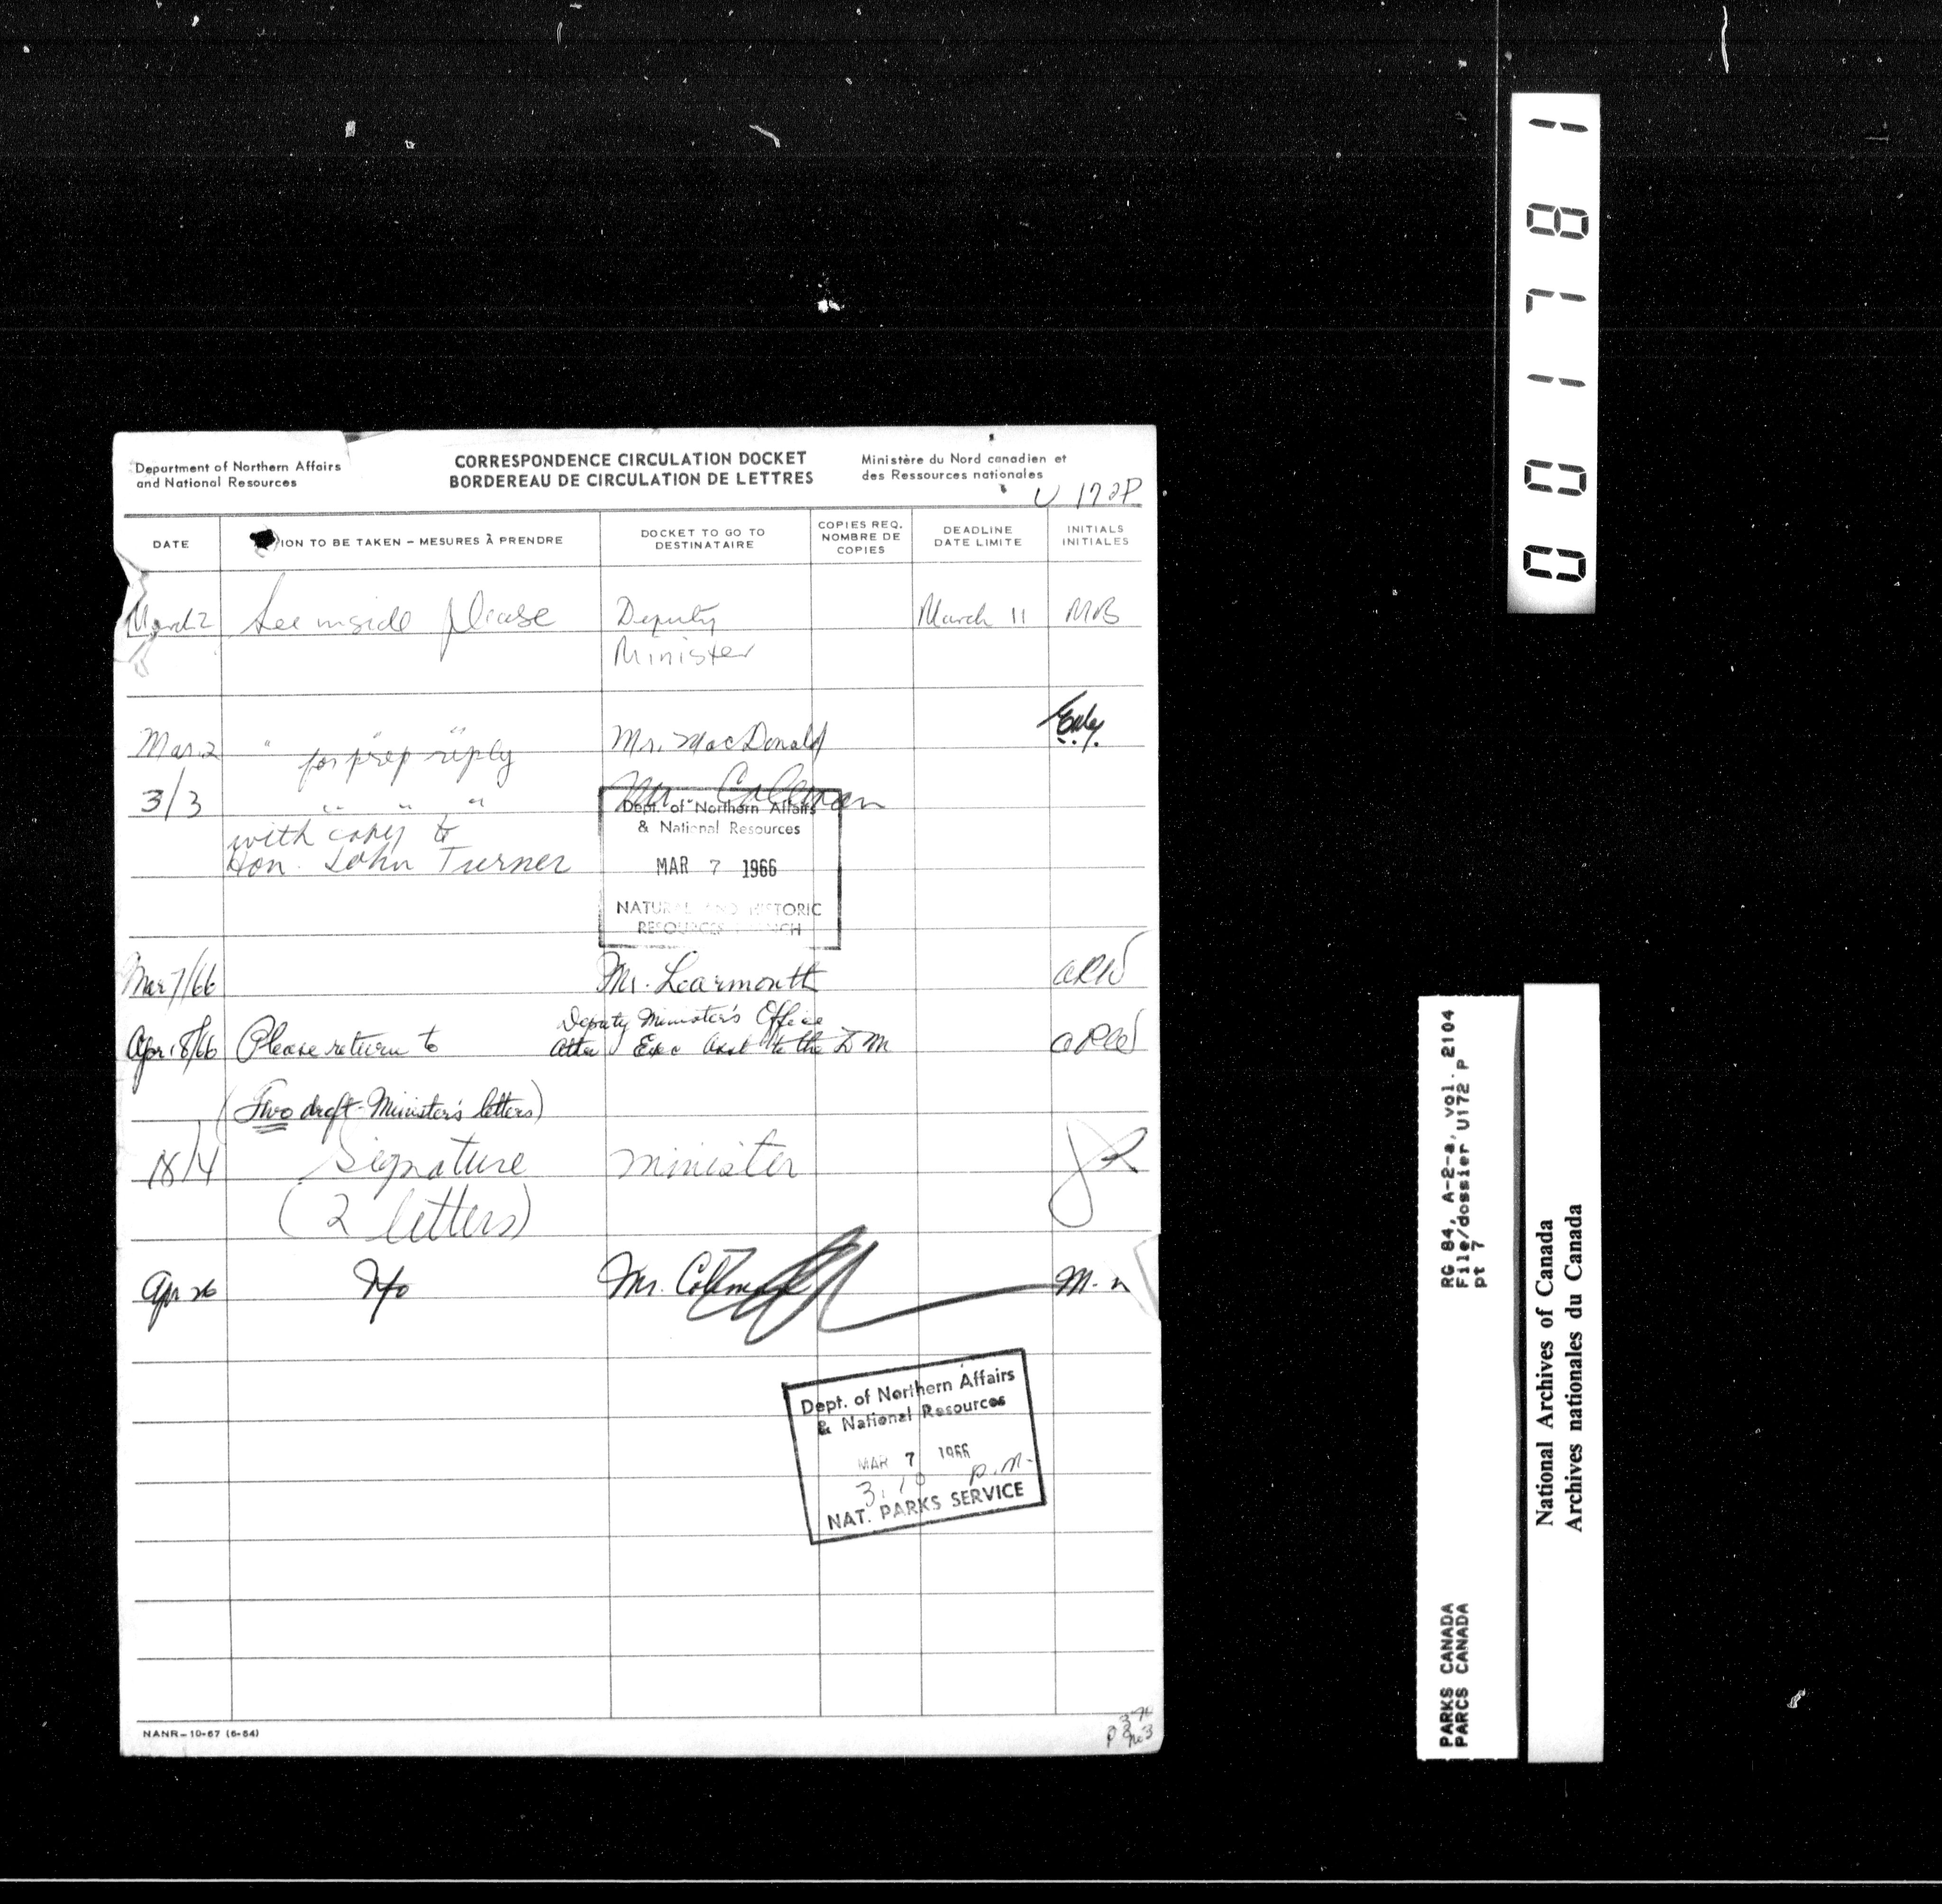 Department of Northern Affairs
and National Resources
CORRESPONDENCE CIRCULATION DOCKET
BORDEREAU DE CIRCULATION DE LETTRES
Ministère du Nord canadien et
des Ressources nationales
U 172P
DATE
ION TO BE TAKEN – MESURES À PRENDRE
DOCKET TO GO TO
DESTINATAIRE
COPIES REQ.
NOMBRE DE
COPIES
DEADLINE
DATE LIMITE
INITIALS
INITIALES
March 2 See inside please Deputy March 11 MB
Minister
Mar. 2 " " " Mr. MacDonald
for prep reply
3/3 " " " Mr. Coleman
with copy to
Hon. John Turner
Dept. of Northern Affairs
& National Resources
MAR 7 1966
NATURAL AND HISTORIC
RESOURCES BRANCH
Mar 7/66 Mr. Learmonth
Deputy Minister's Office
Apr. 18/66 Please return to Attn Exec Asst to the DM
(Two draft Minister's letters)
18/4 Signature minister
(2 letters)
Apr 26 Mr. Coleman
Dept. of Northern Affairs
& National Resources
MAR 7 1966
3:10 p.m.
NAT. PARKS SERVICE
NANR–10-67 (6-64)
001781
RG 84, A-2-a, vol. 2104
File/dossier U172 P
pt 7
PARKS CANADA
PARCS CANADA
National Archives of Canada
Archives nationales du Canada